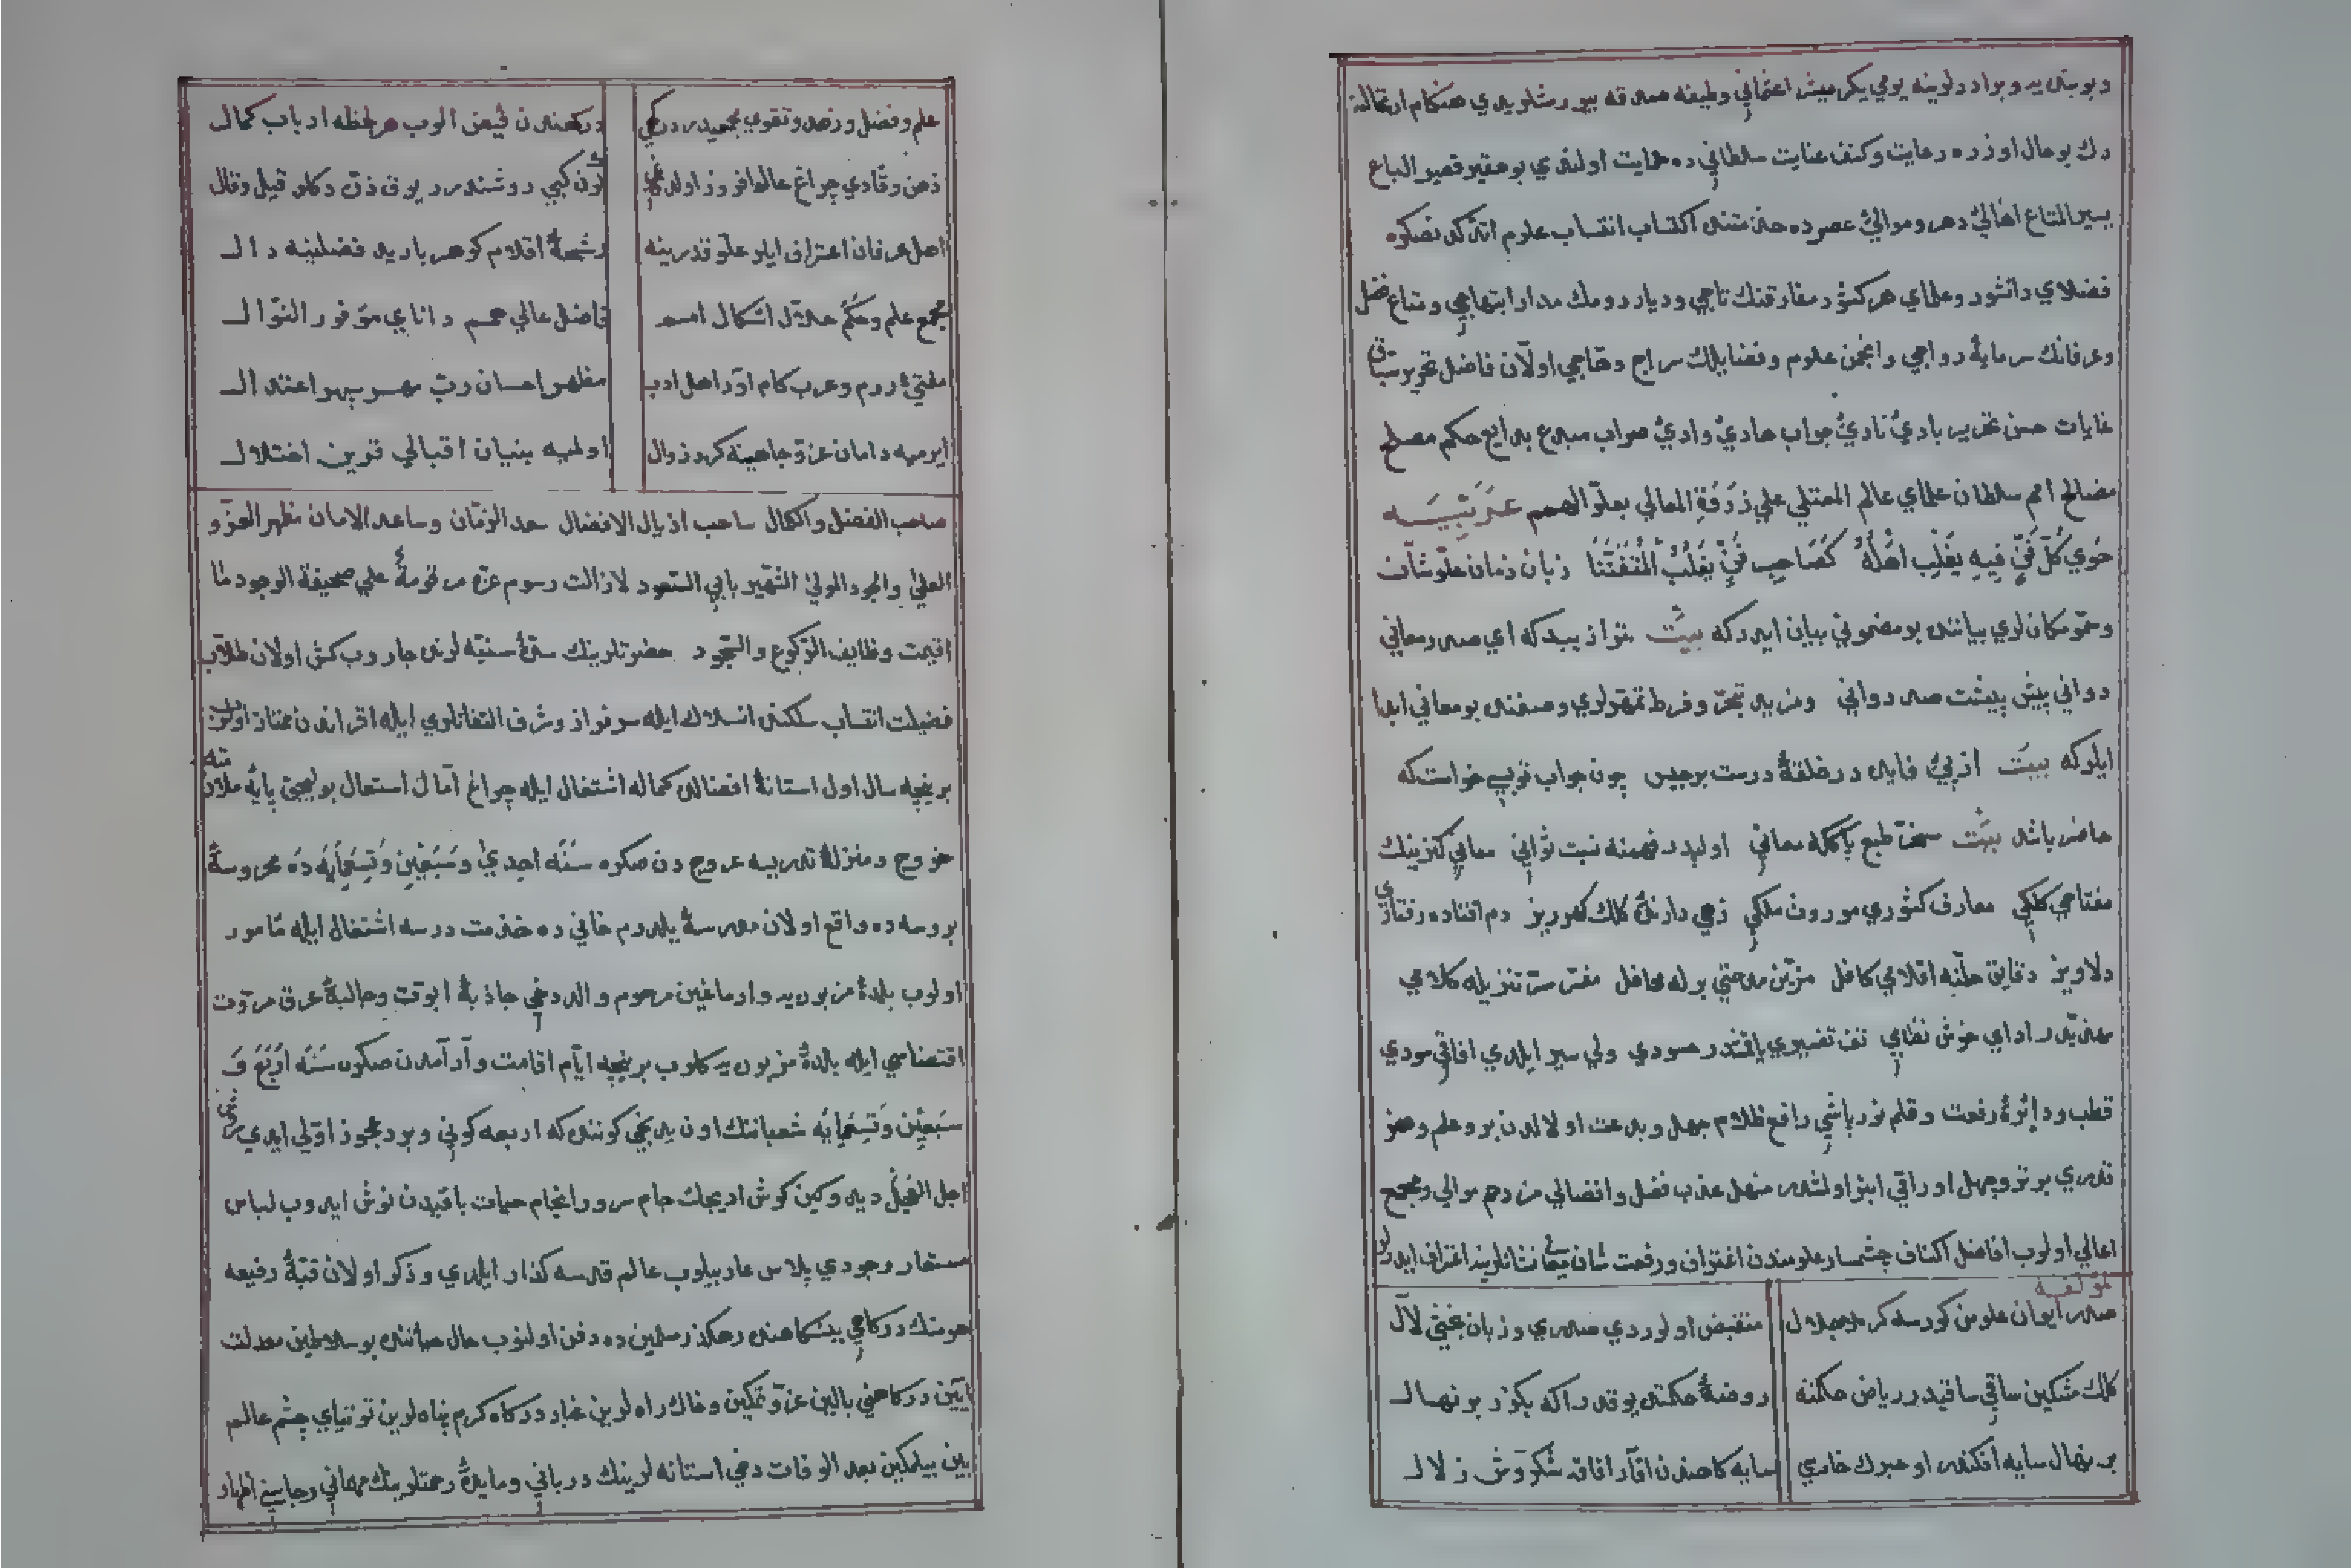 وبوبنده یه وبرادرلرینه یومی یکرمیش اعثمانی وظیفه صدقه بیورمشلریدی هنکام ارتحالنه
دك بو حال اوزره رعایت وکنف عنایت سلطانی ده حمایت اولندی بو حقیر قصیر الباع
یسیر المتاع اهالئ دهر وموالئ عصرده خدمتنده اکتساب انتساب علوم اتدکدنصکره
فضلای دانشور وعلمای هر کشور مفارقنك تاجی ودیار رومك مدار ابتهاجی ومتاع فضل
وعرفانك سرمایهٔ رواجی وانجمن علوم وفضایلك سراج وهاجی اولان فاضل نحریر سباق
غایات حسن تحریر بادئ نادئ جواب هادئ وادئ صواب مبدع بدایع حکم مصلح
مصالح امم سلطان علمای عالم المعتلی علی ذروة المعالی بعلو الهمم عربیه
حوی کل فن فیه یغلب اهله کصاحب فن یغلب المتفننا زبان زمان علو شان
وسمو مکانلری بیاننده بو مضمونی بیان ایدرکه بیت توازیبدکه ای صدر معانی
دوانی پیش پیشت صد دوانی ومزید تبحر وفرط تمهرلری وصفنده بو معانی ابدا
ایلرکه بیت از پئ فایده در حلقهٔ درست برجیس چون جواب تو پی خواست که
حاضر باشد بیت سخن طبع پاکله معانی اولیدر فهمنه نسبت ثوانی معانی کنزینك
مفتاحی کلکی معارف کشوری موروث ملکی زهی دارنڭ کلك کهرریز دم افتاده رفتاری
دلاویز دقایق حلنه اقلامی کافل مزین مدحتی برله محافل مفسر سر تنزیله کلامی
مهذبدر ادای خوش نظامی تف تفسیری یاقندر حسودی ولی سیر ایلدی افاقی سودی
قطب ودایرهٔ رفعت وقلم نور پاشی رافع ظلام جهل وبدعت اولالدن بر و علم وهنر
ندری برتر وجهل اوراقی ابتر اولشدر منهل عذب فضل وافضالی مزدحم موالی ومجمع
اعالی اولوب افاضل اکناف چشمسار علومندن اغتراف ورفعت شان معانی نشانلرینه اعتراف ایدرلر
لمؤلفه
صدر ایوان علومن کورسه کر اهل جلال منقبض اولوردی صدری وزبان نطقی لال
کلك مشکین ساقی ساقیدر ریاض حکمته روضهٔ حکمتده یوقدر اکه بکزر بو نهال
بر نهال سایه افکندر او هر برك خاری سایه کاهندن اقار افاقه شکروش زلال
علم وفضل وزهد وتقوی مجمعیدر درکهی درکهندن فیض الوب هر لحظه ارباب کمال
ذهن وقادی چراغ عالم افروز اولدغی کون کبی روشندر یوق ذره دکلو قیل وقال
اهل عرفان اعتراف ایلر علو قدرینه رشحهٔ اقلام کوهر باریدر فضلینه دال
مجمع علم وحکم حلال اشکال امم فاضل عالی همم دانای موفور النوال
مفتئ روم وعرب کام اور اهل ادب مظهر احسان رب مهر سپهر اعتدال
ایرمیه دامان عز وجاهینه کرد زوال اولمیه بنیان اقبالی قرین اختلال
صاحب الفضل والکمال ساحب اذیال الافضال سعد الزمان وساعد الامان مظهر العز و
العلی والجود المولی الشهیر بابی السعود لازالت رسوم عزه مرقومة علی صحیفة الوجود ما
اقیمت وظایف الرکوع والسجود حضرتلرینك سدهٔ سنیه لرنده جاروب کش اولان طلاب
فضیلت انتساب سلکنده انسلاك ایله سرفراز وشرف التفاتلری ایله اقراندن ممتاز اولوب
برنیچه سال اول استانهٔ افضالده کماله اشتغال ایله چراغ آمال اشتعال بولیجق پایهٔ ملازمته
خروج ومنزلهٔ تدریسه عروج دن صکره سنه احدی وسبعین وتسعمایه ده محروسهٔ
بروسه ده واقع اولان مدرسهٔ یلدرم خانی ده خدمت درسه اشتغال ایله مامور
اولوب بلدهٔ مزبوره یه وارماغین مرحوم والد دخی جاذبهٔ ابوت وجالبهٔ عرق مروت
اقتضاسی ایله بلدهٔ مزبوره یه کلوب برنیچه ایام اقامت وآرامدن صکره سنه اربع و
سبعین وتسعمایه شعبانتك اون یدنجی کوننده که اربعه کونی وبرد عجوز اولی ایدی
اجل الغیل دیه وکین کوش ادیجك جام سرور انجام حیات باقیدن نوش ایدوب لباس
مستعار وجودی پلاس عار بیلوب عالم قدسه کذار ایلدی وذکر اولان قبهٔ رفیعه
حومتك درکاهی پیشکاهنده رهکذر سلمین ده دفن اولنوب حال حیاتنده بو سلاطین معدلت
آیین درکاهنی بالین عز وتمکین وخاك راه لرین غبار درکاه کرم پناه لرین توتیای چشم عالم
بین بیلمکین بعد الوفات دخی استانه لرینك دربانی ومایدهٔ رحمتلرینك مهمانی رجاسنی اظهار